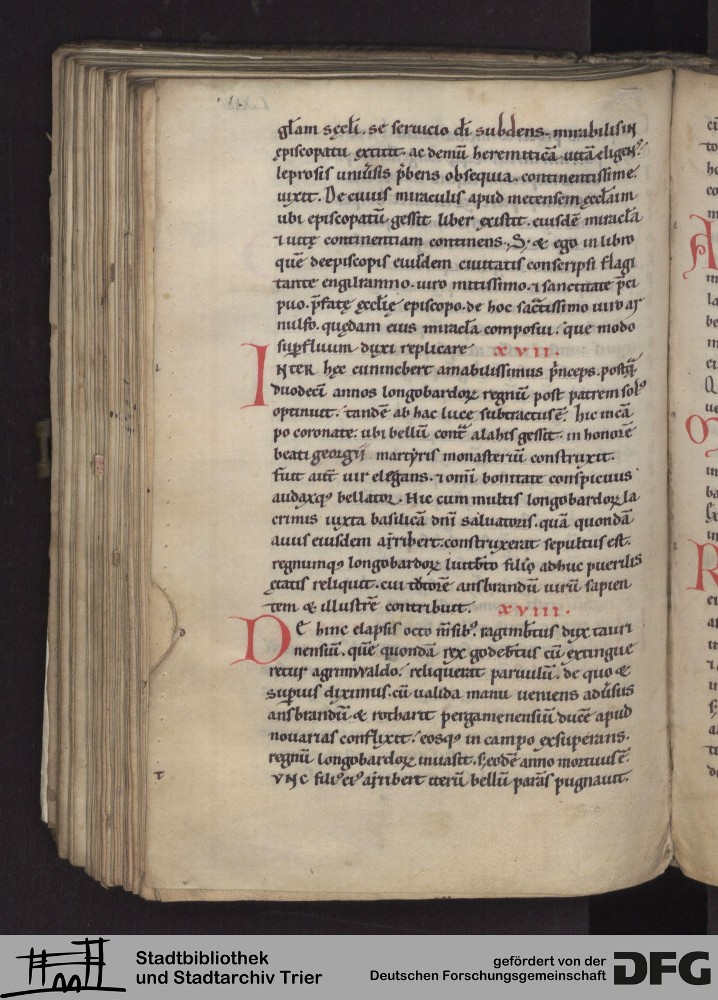 gl̄am sęcl̄i. se seruicio dī subdens. mirabilis in
ępiscopatu extitit. ac demū heremiticā uitā eligens.
leprosis uniu̾sis p̄bens obsequia. continentissime
uixit. De cuius miraculis apud metensem ęccl̄am
ubi episcopatū gessit liber existit. eiusdē miracl̄a
⁊ uitę continentiam continens. S; & ego in libro
quē de episcopis eiusdem ciuitatis conscripsi flagi
tante engilramno. uiro mitissimo. ⁊ sanctitate p̄ci
puo. p̄fatę ęccl̄ię episcopo. de hoc sac̄tissimo uiro ar
nulfo. quędam eius miracl̄a composui. que modo
sup̄fluum duxi replicare. xvii.
INTER hęc cunincbert amabilissimus p̄nceps. postq̄
duodecī annos longobardoꝝ regnū post patrem sol᷒
optinuit. tandē ab hac luce subtractus ē. hic in cā
po coronate. ubi bellū cont̄ alahis gessit. in honorē
beati georgij martyris monasteriū construxit.
fuit aut̄ uir elegans. ⁊ omī bonitate conspicuus
audaxqꝫ bellator. Hic cum multis longobardoꝝ la
crimis iuxta basilicā dn̄i saluatoris. quā quondā
auus eiusdem aribert. construxerat sepultus est.
regnumqꝫ longobardoꝝ liutb̄to filio adhuc puerilis
ętatis reliquit. cui tutorē ansbrandū uirū sapien
tem & illustrē contribuit. xviii.
DE hinc elapsis octo m̄sib᷒. ragimb̄tus dux tauri
nensiū. quē quondā rex godeb̄tus cū extingue
retur a grimwaldo. reliquerat paruulū. de quo &
sup̄ius diximus. cū ualida manu ueniens adu̾sus
ansbrandū & rotharit pergamensiū ducē apud
nouarias conflixit. eosqꝫ in campo exsuperans.
regnū longobardoꝝ inuasit. s; eodē anno mortuus ē.
t VNC fili᷒ ei᷒ aribert iterū bellū parās pugnauit.
Stadtbibliothek
und Stadtarchiv Trier
gefördert von der
Deutschen Forschungsgemeinschaft
DFG